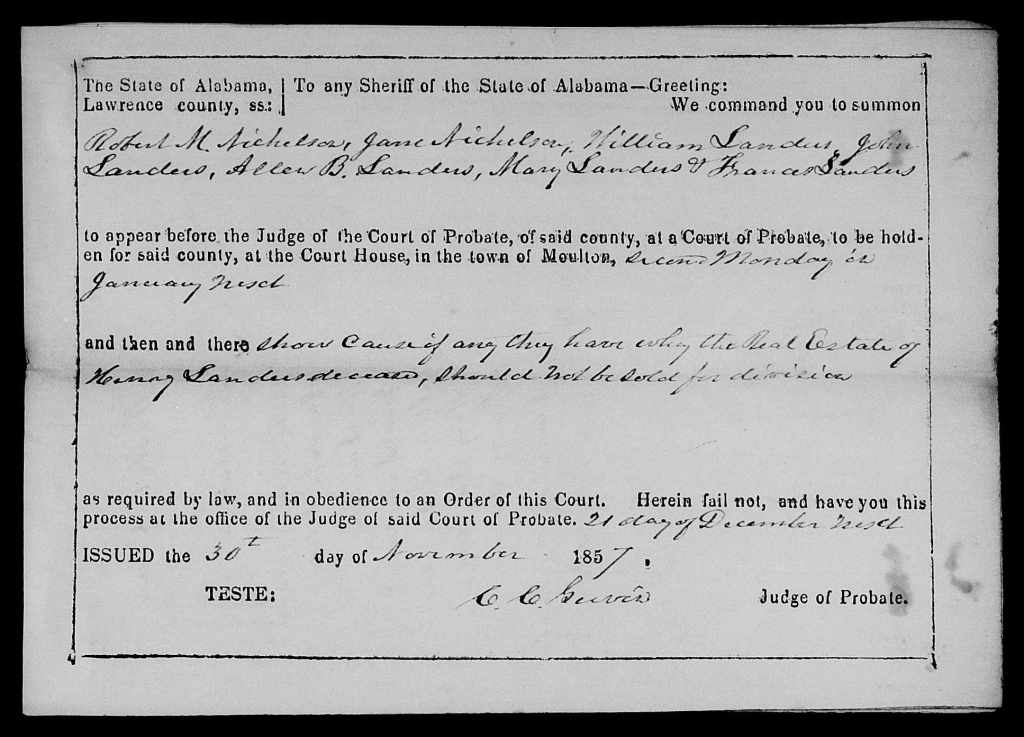 The State of Alabama, To any Sheriff of the State of Alabama—Greeting:
Lawrence county, ss: We command you to summon
Robert M. Nichelson, Jane Nichelson, William Landers, John
Landers, Allen B. Landers, Mary Landers & Frances Landers
to appear before the Judge of the Court of Probate, of said county, at a Court of Probate, to be hold-
en for said county, at the Court House, in the town of Moulton, second Monday in
January next
and then and there show cause if any they have why the Real Estate of
Henry Landers deceased, should not be sold for division
as required by law, and in obedience to an Order of this Court. Herein fail not, and have you this
process at the office of the Judge of said Court of Probate. 21 day of December next
ISSUED the 30t day of November 1857.
TESTE: C. C. Judge of Probate.